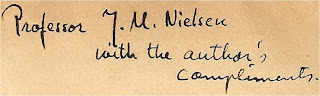 Professor J. M. Nielsen
with the author's
compliments.